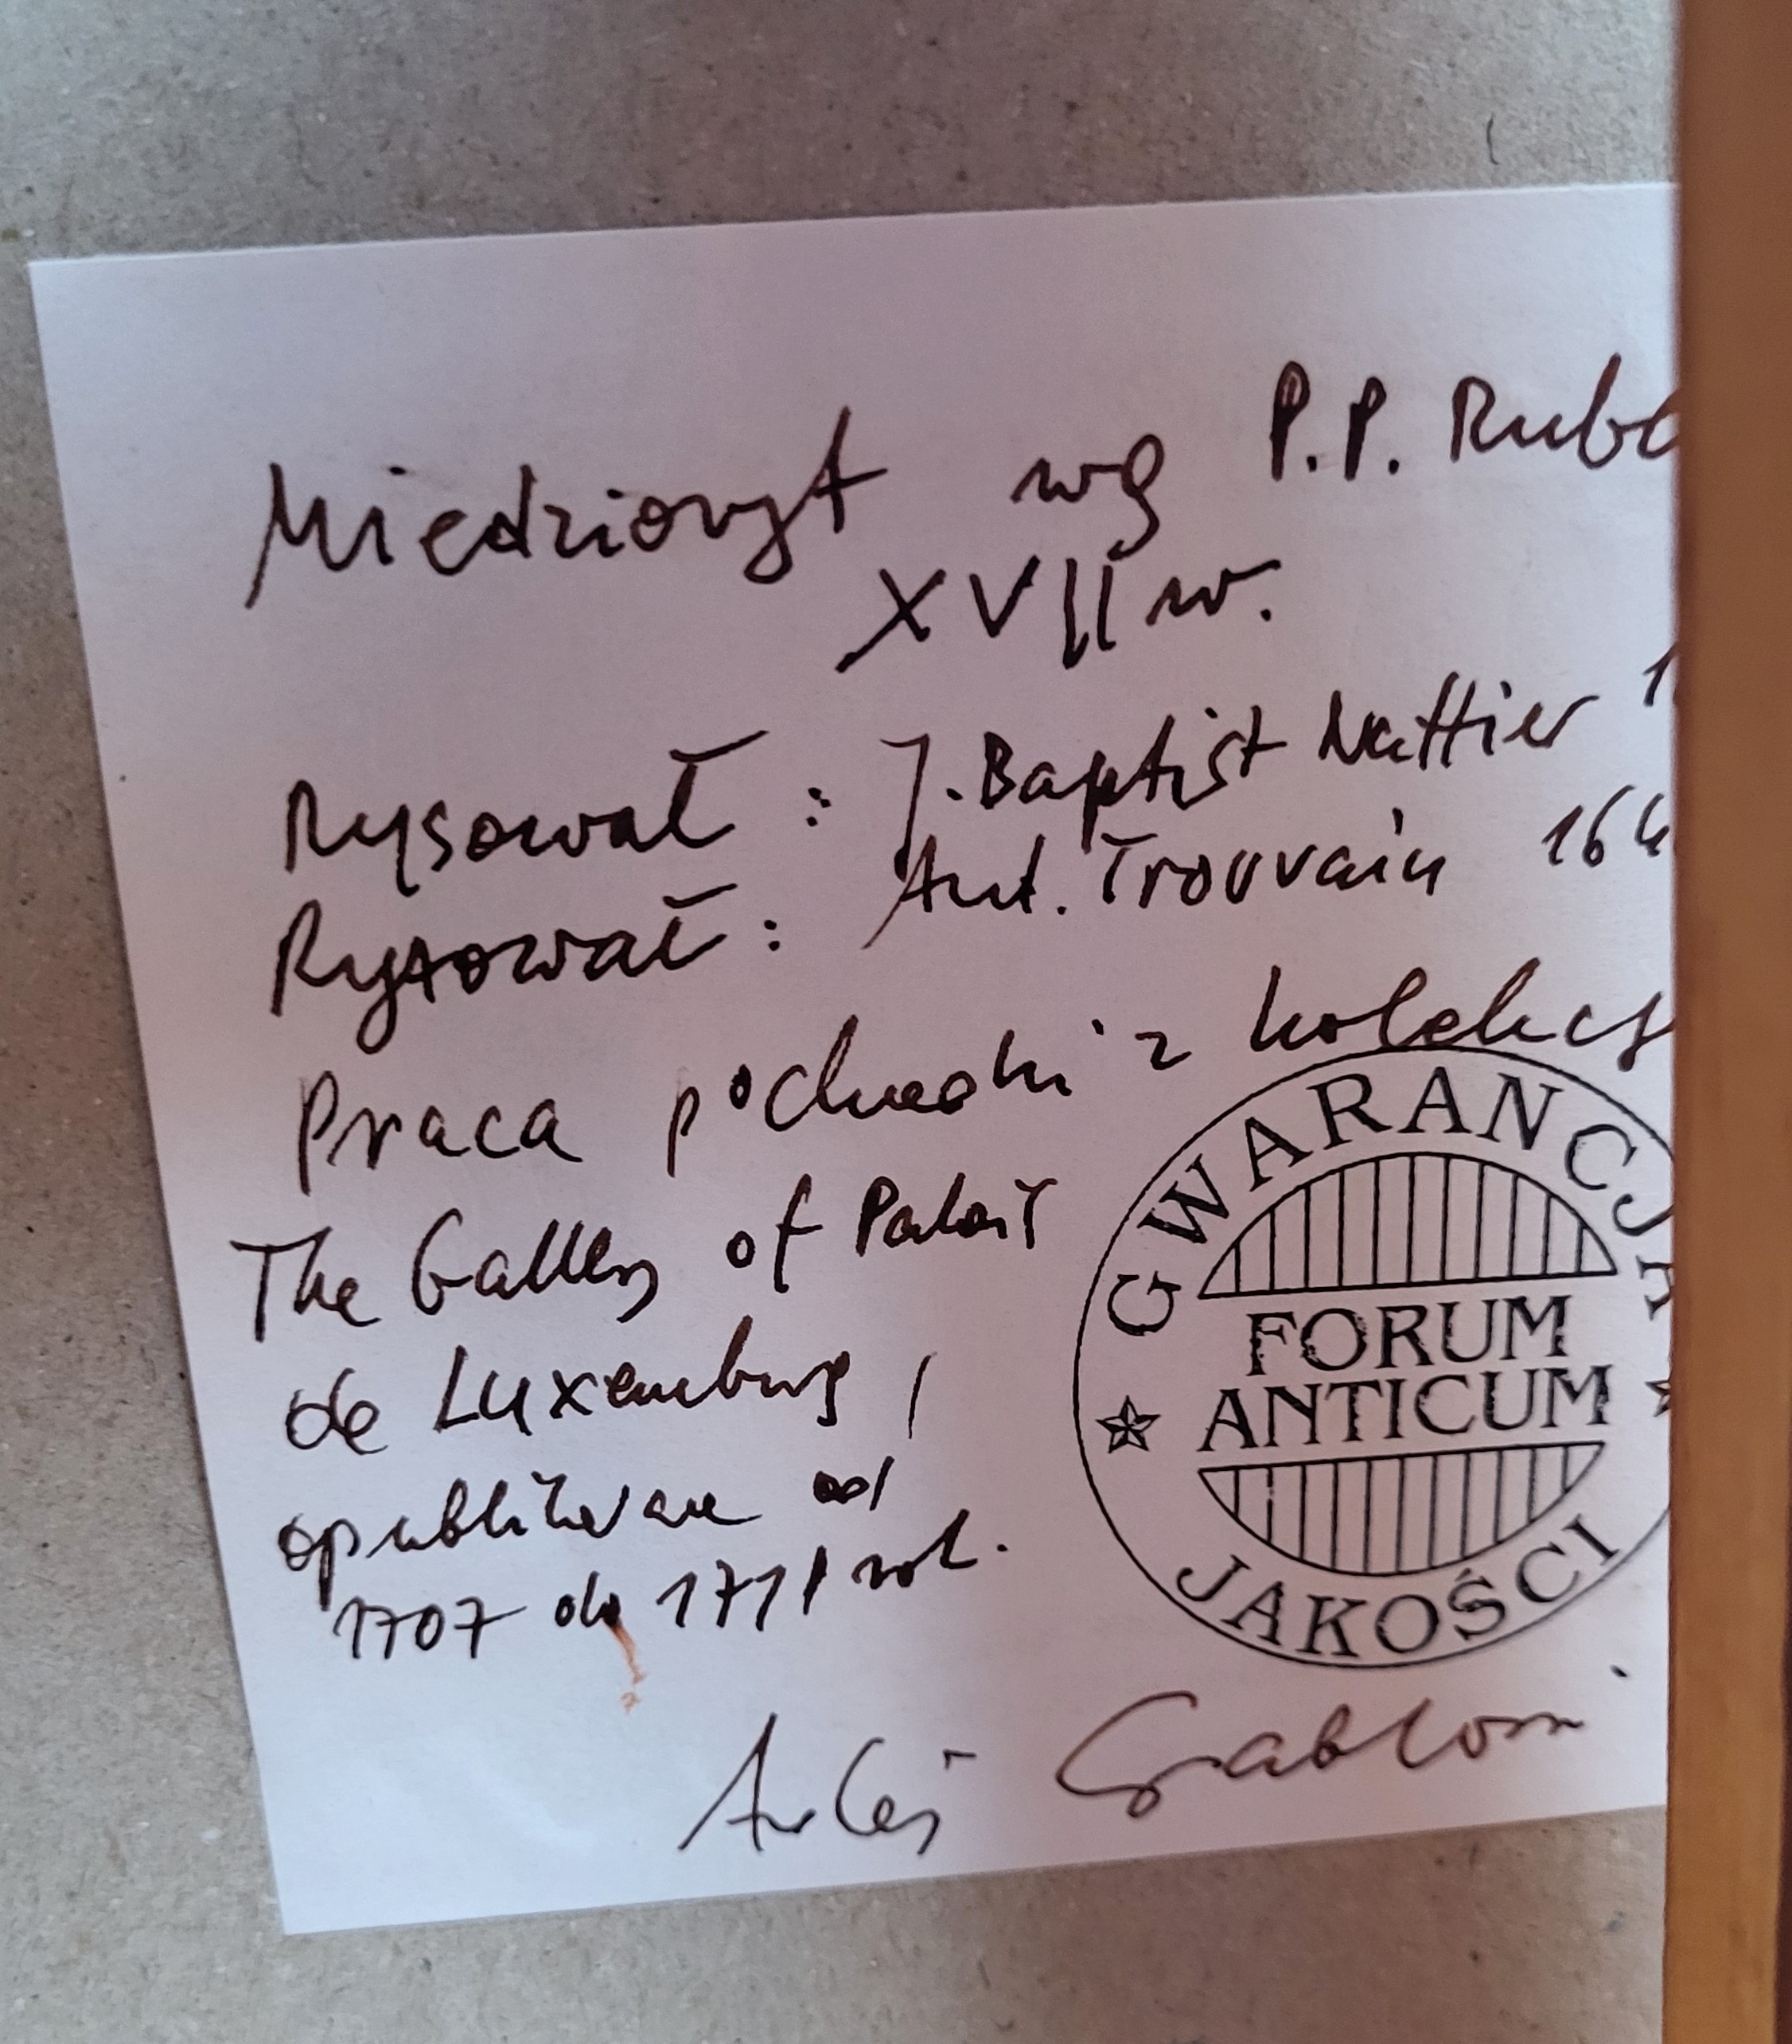 Miedzioryt wg P.P. Rube
XVII w.
Rysował : J. Baptist Nattier 1
Rytował : Ant. Trouvain 16
Praca pochodzi z kolekcj
The Gallery of Palais
de Luxemburg,
opublikowane od
1707 do 1711 rok.
GWARANCJA
FORUM
ANTICUM
JAKOŚCI